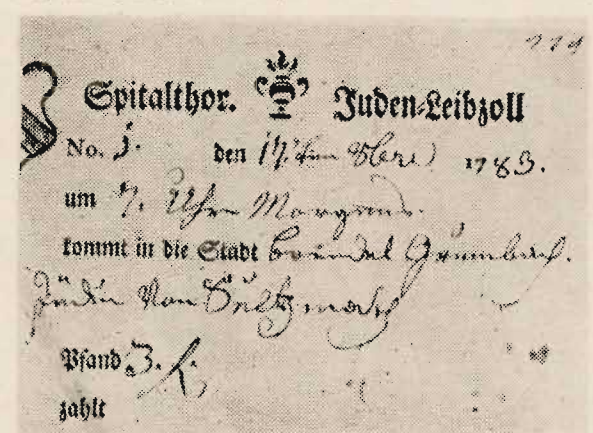 114
Spitalthor. Juden-Leibzoll
No. 5. den 17.ten 8bre 1783.
um 7. Uhr Morgens.
kommt in die Stadt Breindel Grumbach.
Jüdin von
Pfand 3.
zahlt